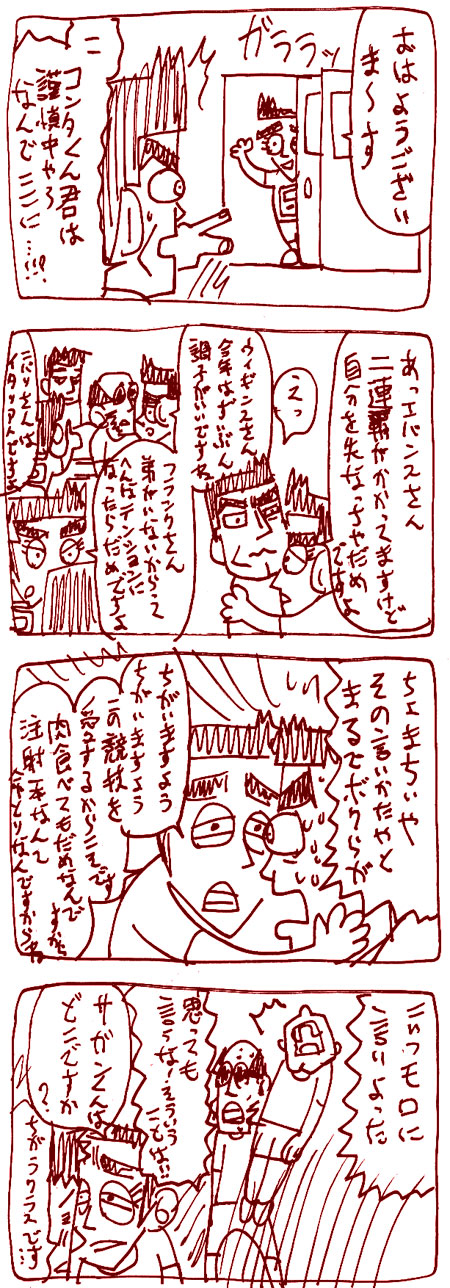 おはようござい
ま〜す
ガララッ
コンタくん君は
謹慎中やろ
なんでここに…!!!
あっエバンスさん
二連覇がかかってますけど
自分を失なっちゃだめ
ですよ
えっ
ウィギンスさん
今年はずいぶん
調子がいいですね
フランクさん
弟がいないからって
へんなテンションに
なったらだめですよ
ニバリさんは
イタリアんですよ
ちょまちぃや
その言いかたやと
まるでボクらが
ちがいますよう
ちがいますよう
この競技を
愛するからこそです
肉食べてもだめなんで
すから
注射一本なんて
命とりなんですからね
こいつモロに
言いよった
思っても
言うな!そういう
ことは!!
サガンくんは
どこですか
?
ちがうクラスです